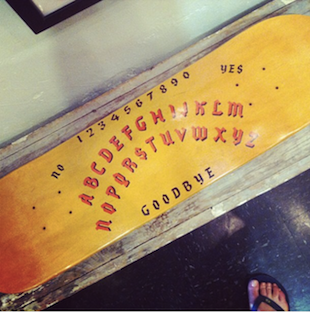 NO 1234567890 YES
ABCDEFGHIJKLM
NOPQRSTUVWXYZ
GOODBYE